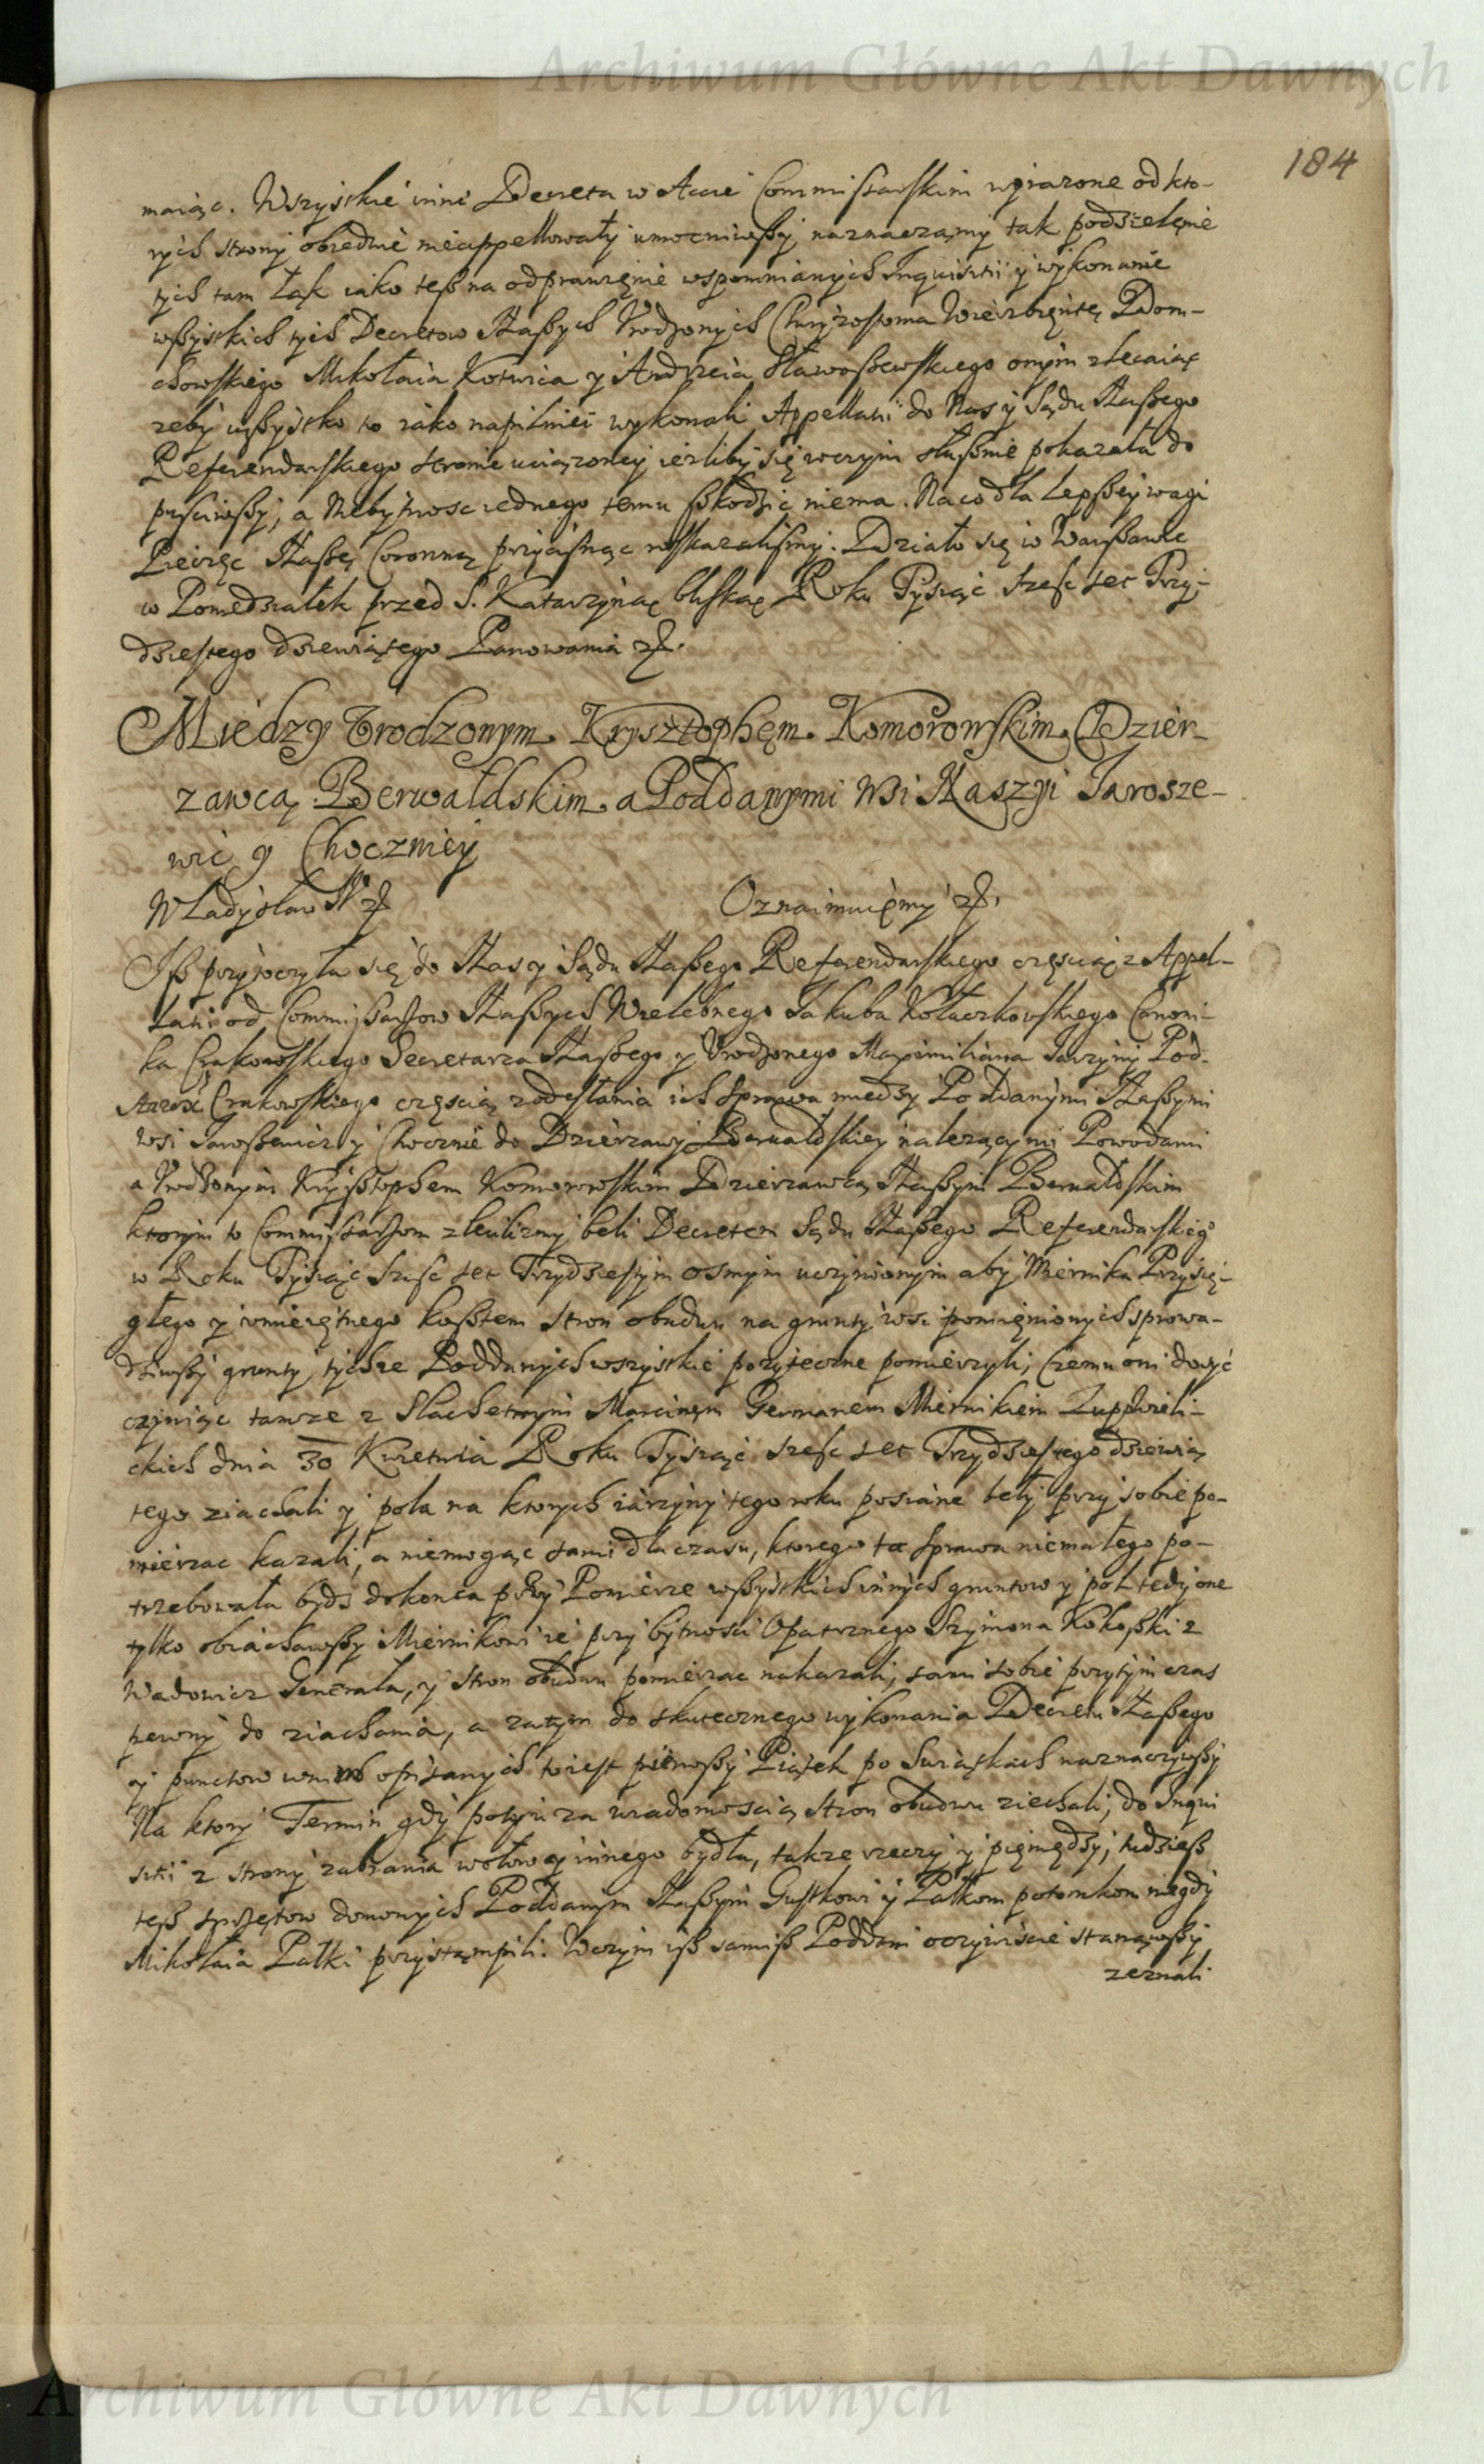 Archiwum Główne Akt Dawnych
184
maiąc. Wszystkie inne Decreta w Akcie Commissarskim wyrazone od kto-
rych strony obiedwie nieappellowały umocniwszy naznaczamy tak podzielenie
tych tam Łąk iako tesz na odprawienie wspomnianych Inquisitii y wykonanie
wszystkich tych Decretow Naszych Urodzonych Chryzostoma Wierzbiętę Dom-
chowskiego Mikołaia Kotwica y Andrzeia Sławoszewskiego onym zlecaiąc
zeby wszystko to iako napilniei wykonali Appellatii do Nas y Sądu Naszego
Referendarskiego stronie uciązoney iezliby się wczym słusznie pokazała do
pusciwszy, a Niebytnosc iednego temu szkodzic niema. Na co dla Lepszey wagi
Pieczęc Naszę Coronną przycisnąc roskazalismy. Działo się w Warszawie
w Poniedziałek przed S. Katarzyną bliską Roku Tysiąc szesc set Trzy-
dziestego dziewiątego Panowania etc.
Między Urodzonym Krysztophem Komorowskim Dzier-
zawcą Berwałdskim a Poddanymi Wsi Naszyi Jarosze-
wic y Choczniey
Władysław IV etc
Oznaimuiemy etc.
Isz przytoczyła się do Nas y Sądu Naszego Referendarskiego częscią z Appel-
latii od Commissarzow Naszych Wielebnego Jakuba Kołaczkowskiego Canoni-
ka Crakowskiego Secretarza Naszego y Urodzonego Maximiliana Jarzyny Pod-
Crakowskiego częscią z odesłania ich sprawa miedzy Poddanymi Naszymi
Wsi Jaroszewicz y Chocznie do Dzierzawy Berwałdskiey nalezącymi Powodami
a Urodzonym Krysztophem Komorowskim Dzierzawcą Naszym Berwałdskim
ktorym to Commissarzom zleciliśmy beli Decretem Sądu Naszego Referendarskieg°
w Roku Tysiąc szesc set Trzydziestym osmym uczynionym aby Miernika Przysię-
głego y umieiętnego kosztem stron obudwu na grunty wsi pomienionych sprowa-
dziwszy grunty tychze Poddanych wszystkie pozyteczne pomierzyli, Czemu oni dosyć
czyniąc tamze z Slachetnym Marcinem Germanem Miernikiem Zupp Wieli-
ckich dnia 30 Kwietnia Roku Tysiąc szesc set Trzydziestego dziewią
tego ziachali y pola na ktorych iarzyny tego roku posiane beły przy sobie po-
mierzac kazali, a niemogąc sami dla czasu, ktorego ta sprawa niemałego po-
trzebowała bydz dokonca przy Pomierze wszystkich innych gruntow y pol tedy one
tylko obiachawszy Miernikowi ie przy bytnosci Opatrznego Szymona Kokoszki z
Wadowicz Generała, y stron obudwu pomierzac nakazali, sami sobie przytym czas
pewny do ziachania, a zatym do skutecznego wykonania Decretu Naszego
y punctow w nim opisanych to iest pierwszy Piątek po Swiątkach naznaczywszy
Na ktory Termin gdy potym za wiadomoscią stron obudwu ziechali, do Inqui
sitii z strony zabrania wołow y innego bydła, takze rzeczy y pieniędzy, tudziesz
tesz sprzętow domowych Poddanym Naszym Gustkowi y Pałkom potomkom niegdy
Mikołaia Pałki przystąmpili. Wczym isz samisz Poddani oczywiscie stanąwszy
zeznali
Archiwum Główne Akt Dawnych